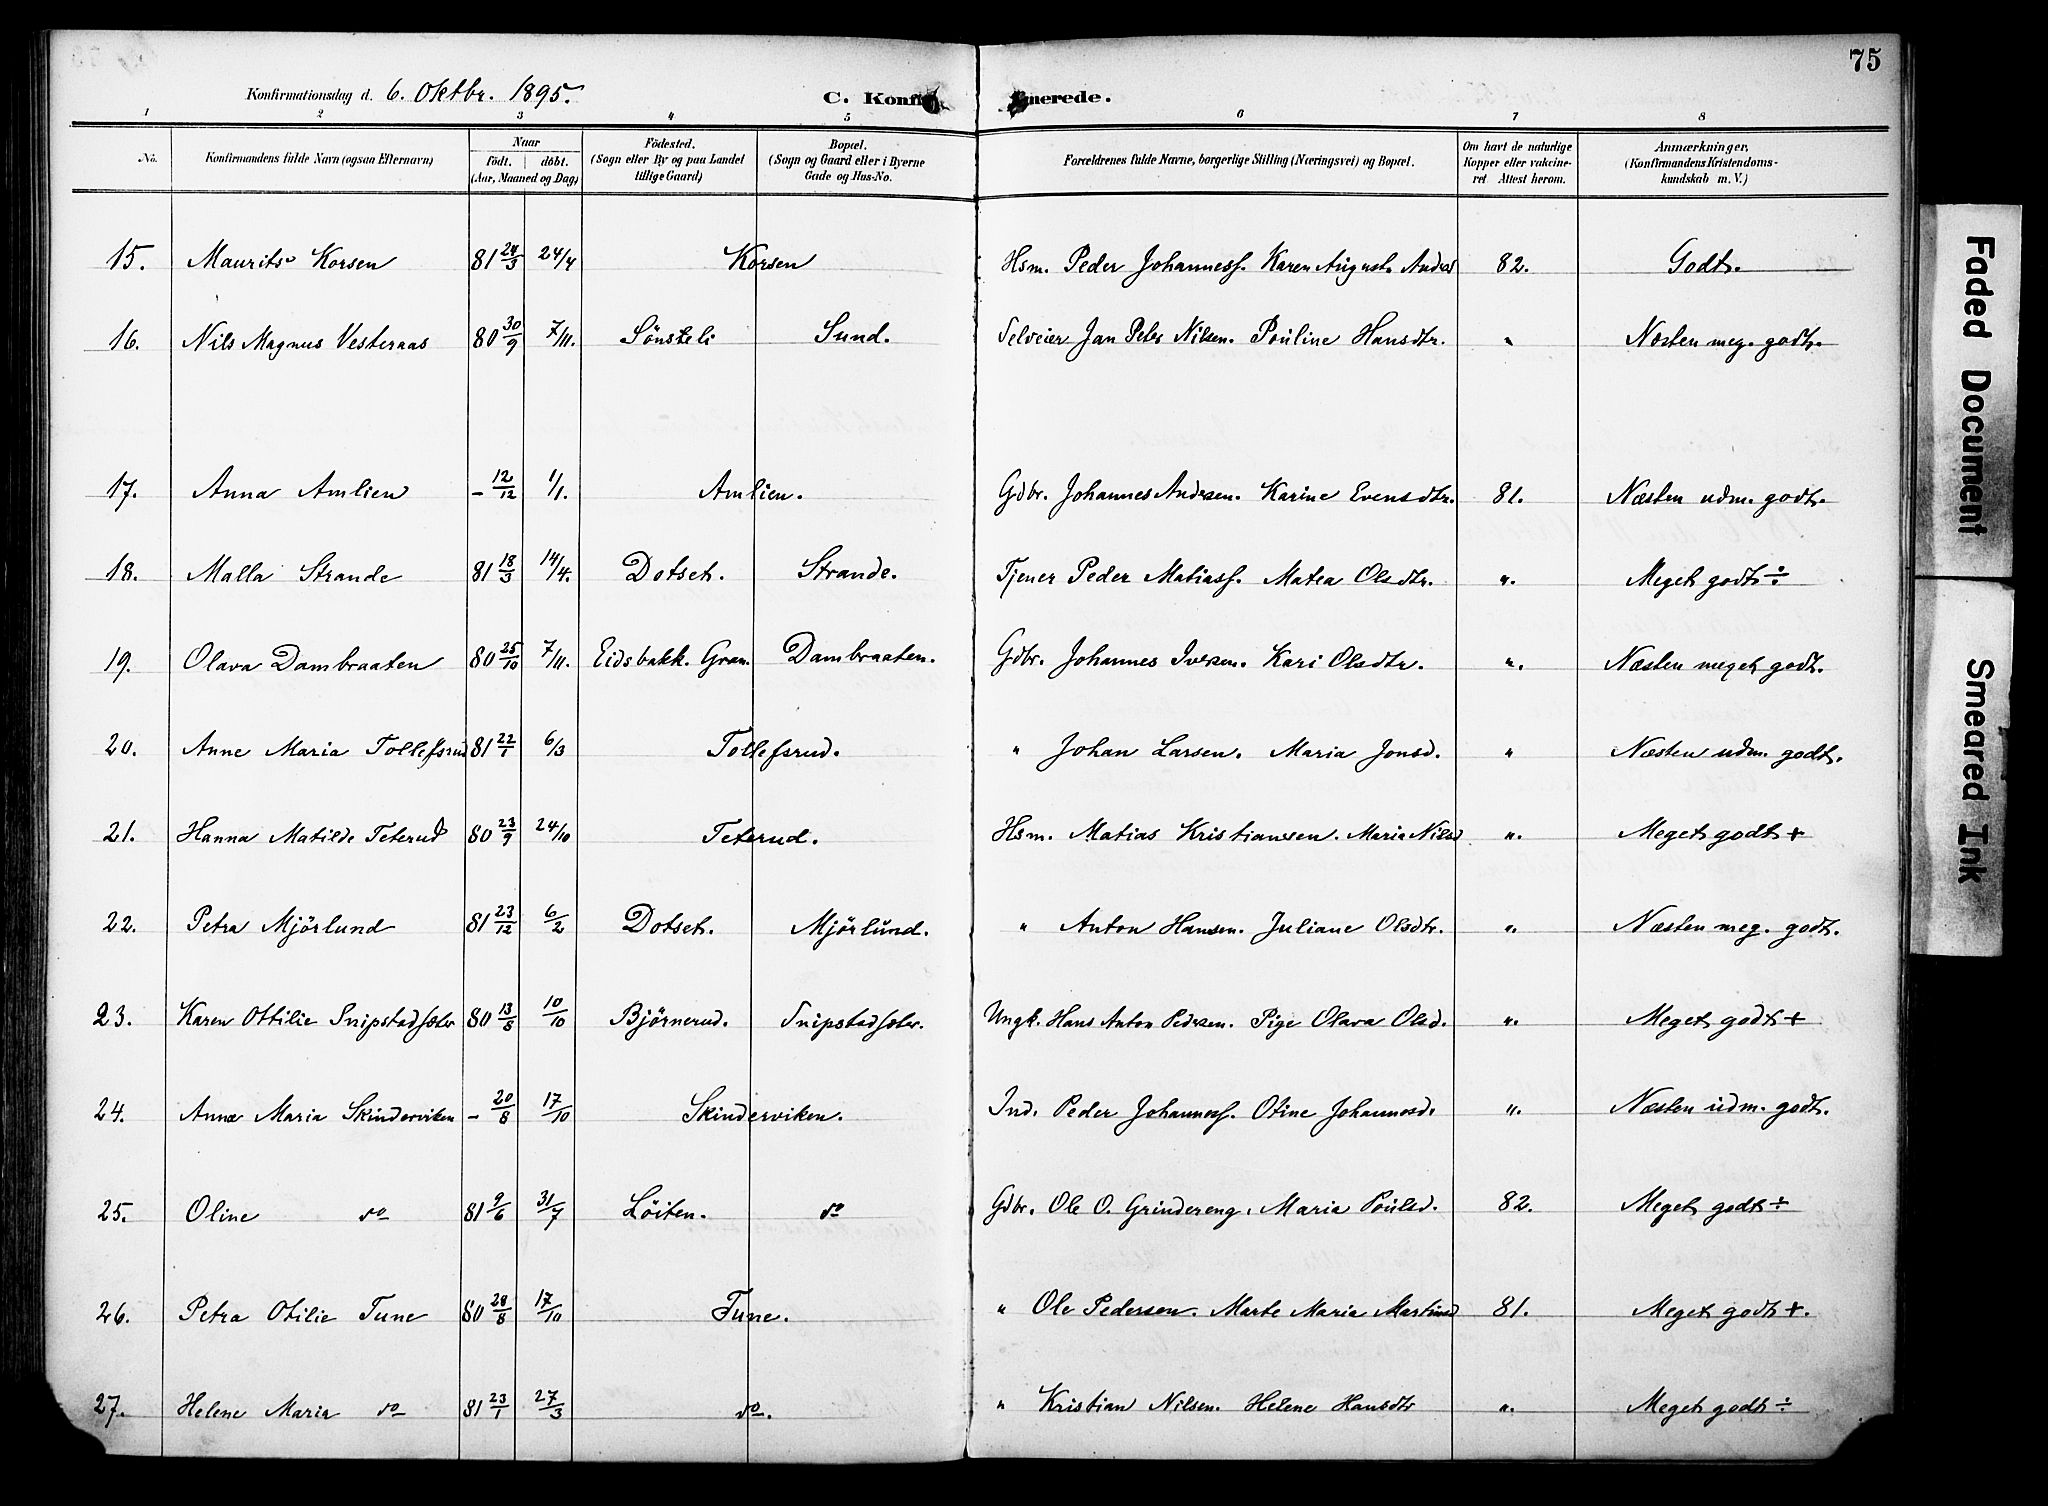 75
Konfirmationsdag d. 6. Oktbr. 1895.
C. Konfirmerede.
1 2 3 4 5 6 7 8
No. Konfirmandens fulde Navn (ogsaa Efternavn) Naar født. døbt. (Aar, Maaned og Dag) Fødested. (Sogn eller By og paa Landet tillige Gaard) Bopæl. (Sogn og Gaard eller i Byerne Gade og Hus-No. Forældrenes fulde Navne, borgerlige Stilling (Næringsvei) og Bopæl. Om havt de naturlige Kopper eller vakcineret Attest herom. Anmærkninger, (Konfirmandens Kristendomskundskab m. V.)
15. Maurits Korsen 81 24/3 24/4 Korsen Hsm. Peder Johannesf. Karen August. Andrs 82. Godt.
16. Nils Magnus Vesteraas 80 30/9 7/11. Sönsteli Sund. Selveier Jan Peter Nilsen. Pouline Hansdtr. " Næsten meg. godt.
17. Anna Amlien - 12/12 1/1. Amlien. Gdbr. Johannes Andersen. Karine Evensdtr. 81. Næsten udm. godt.
18. Malla Strande 81 18/3 14/4. Dotset. Strande. Tjener Peder Matiasf. Matea Olsdtr. ". Meget godt ÷
19. Olava Dambraaten 80 25/10 7/11. Eidsbakk. Gran. Dambraaten. Gdbr. Johannes Iversen. Kari Olsdtr. ". Næsten meget godt.
20. Anne Maria Tollefsrud 81 22/1 6/3 Tollefsrud. " Johan Larsen. Maria Jonsd. " Næsten udm. godt.
21. Hanna Matilde Teterud 80 23/9 24/10 Teterud. Hsm. Matias Kristiansen. Maria Nilsd ". Meget godt +
22. Petra Mjörlund 81 23/12 6/2 Dotset. Mjörlund. " Anton Hansen. Juliane Olsdtr. ". Næsten meg. godt.
23. Karen Ottilie Snipstadsæter 80 13/8 10/10 Björnerud. Snipstadsæter. Ungk. Hans Anton Pedersen. Pige Olava Olsd. ". Meget godt +
24. Anne Maria Skinderviken - 20/8 17/10 Skinderviken. Ind. Peder Johannesf. Otine Johannesd. ". Næsten udm. godt.
25. Oline do 81 9/6 31/7 Löiten. do Gdbr. Ole O. Grindereng. Maria Poulsd. 82. Meget godt ÷
26. Petra Otilie Tune 80 28/8 17/10 Tune. " Ole Pedersen. Marte Maria Martinsd 81. Meget godt +.
27. Helene Maria do 81 23/1 27/3 do. " Kristian Nilsen. Helene Hansdtr ". Meget godt ÷
Faded Document
Smeared Ink